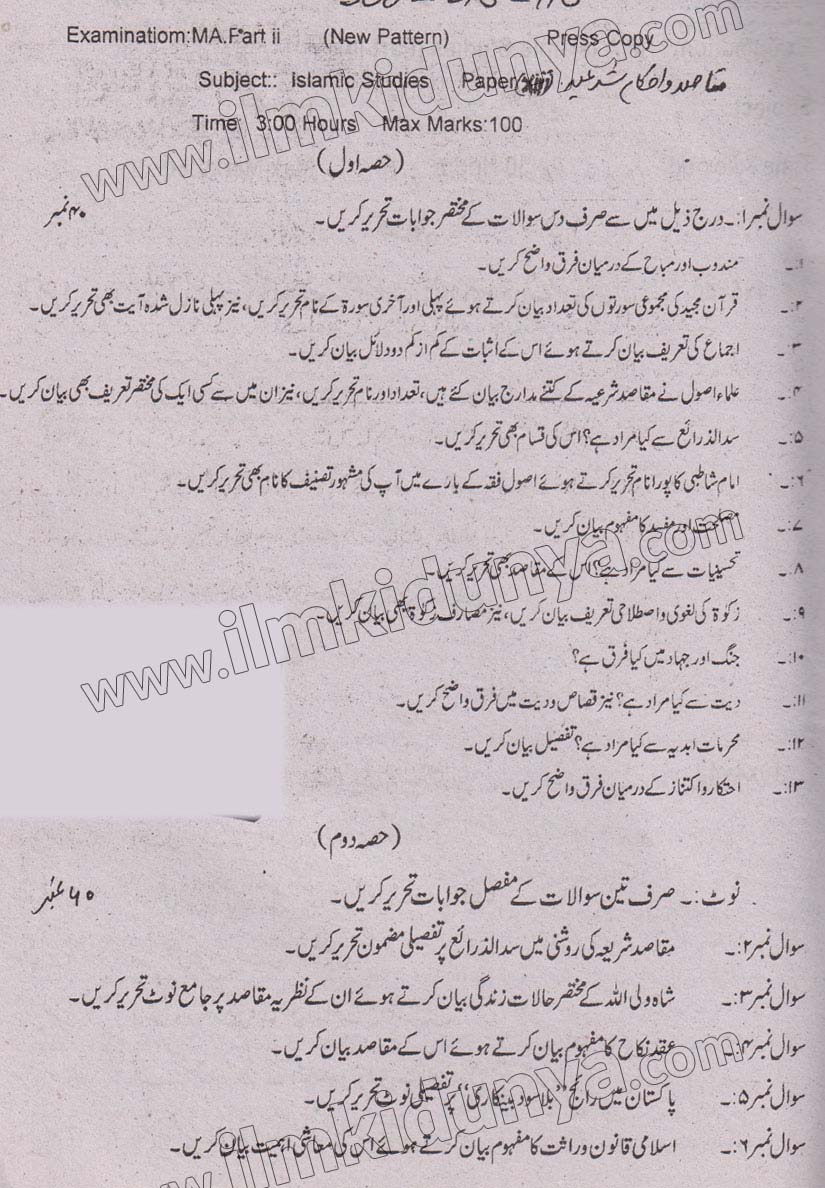 Examinatiom:MA.Part ii (New Pattern) Press Copy
Subject:: Islamic Studies Paper: مقاصد واحکام شرعیہ
Time 3:00 Hours Max Marks:100
(حصہ اول)
سوال نمبر۱:۔ درج ذیل میں سے صرف دس سوالات کے مختصر جوابات تحریر کریں۔ ۴۰ نمبر
۱:۔ مندوب اور مباح کے درمیان فرق واضح کریں۔
۲:۔ قرآن مجید کی مجموعی سورتوں کی تعداد بیان کرتے ہوئے پہلی اور آخری سورۃ کے نام تحریر کریں، نیز پہلی نازل شدہ آیت بھی تحریر کریں۔
۳:۔ اجماع کی تعریف بیان کرتے ہوئے اس کے اثبات کے کم از کم دو دلائل بیان کریں۔
۴:۔ علماء اصول نے مقاصد شرعیہ کے کتنے مدارج بیان کئے ہیں، تعداد اور نام تحریر کریں، نیز ان میں سے کسی ایک کی مختصر تعریف بھی بیان کریں۔
۵:۔ سد الذرائع سے کیا مراد ہے؟ اس کی قسام بھی تحریر کریں۔
۶:۔ امام شاطبی کا پورا نام تحریر کرتے ہوئے اصول فقہ کے بارے میں آپ کی مشہور تصنیف کا نام بھی تحریر کریں۔
۷:۔ مصلحت اور مفسد کا مفہوم بیان کریں۔
۸:۔ تحسینیات سے کیا مراد ہے؟ اس کے مقاصد بھی تحریر کریں۔
۹:۔ زکوۃ کی لغوی واصطلاحی تعریف بیان کریں، نیز مصارف زکوۃ بھی بیان کریں۔
۱۰:۔ جنگ اور جہاد میں کیا فرق ہے؟
۱۱:۔ دیت سے کیا مراد ہے؟ نیز قصاص ودیت میں فرق واضح کریں۔
۱۲:۔ محرمات ابدیہ سے کیا مراد ہے؟ تفصیل بیان کریں۔
۱۳:۔ احتکار واکتناز کے درمیان فرق واضح کریں۔
(حصہ دوم)
نوٹ:۔ صرف تین سوالات کے مفصل جوابات تحریر کریں۔ ۶۰ نمبر
سوال نمبر۲:۔ مقاصد شریعہ کی روشنی میں سد الذرائع پر تفصیلی مضمون تحریر کریں۔
سوال نمبر۳:۔ شاہ ولی اللہ کے مختصر حالات زندگی بیان کرتے ہوئے ان کے نظریہ مقاصد پر جامع نوٹ تحریر کریں۔
سوال نمبر۴:۔ عقد نکاح کا مفہوم بیان کرتے ہوئے اس کے مقاصد بیان کریں۔
سوال نمبر۵:۔ پاکستان میں رائج "بلاسود بینکاری" پر تفصیلی نوٹ تحریر کریں۔
سوال نمبر۶:۔ اسلامی قانون وراثت کا مفہوم بیان کرتے ہوئے اس کی معاشی اہمیت بیان کریں۔
www.ilmkidunya.com
www.ilmkidunya.com
www.ilmkidunya.com